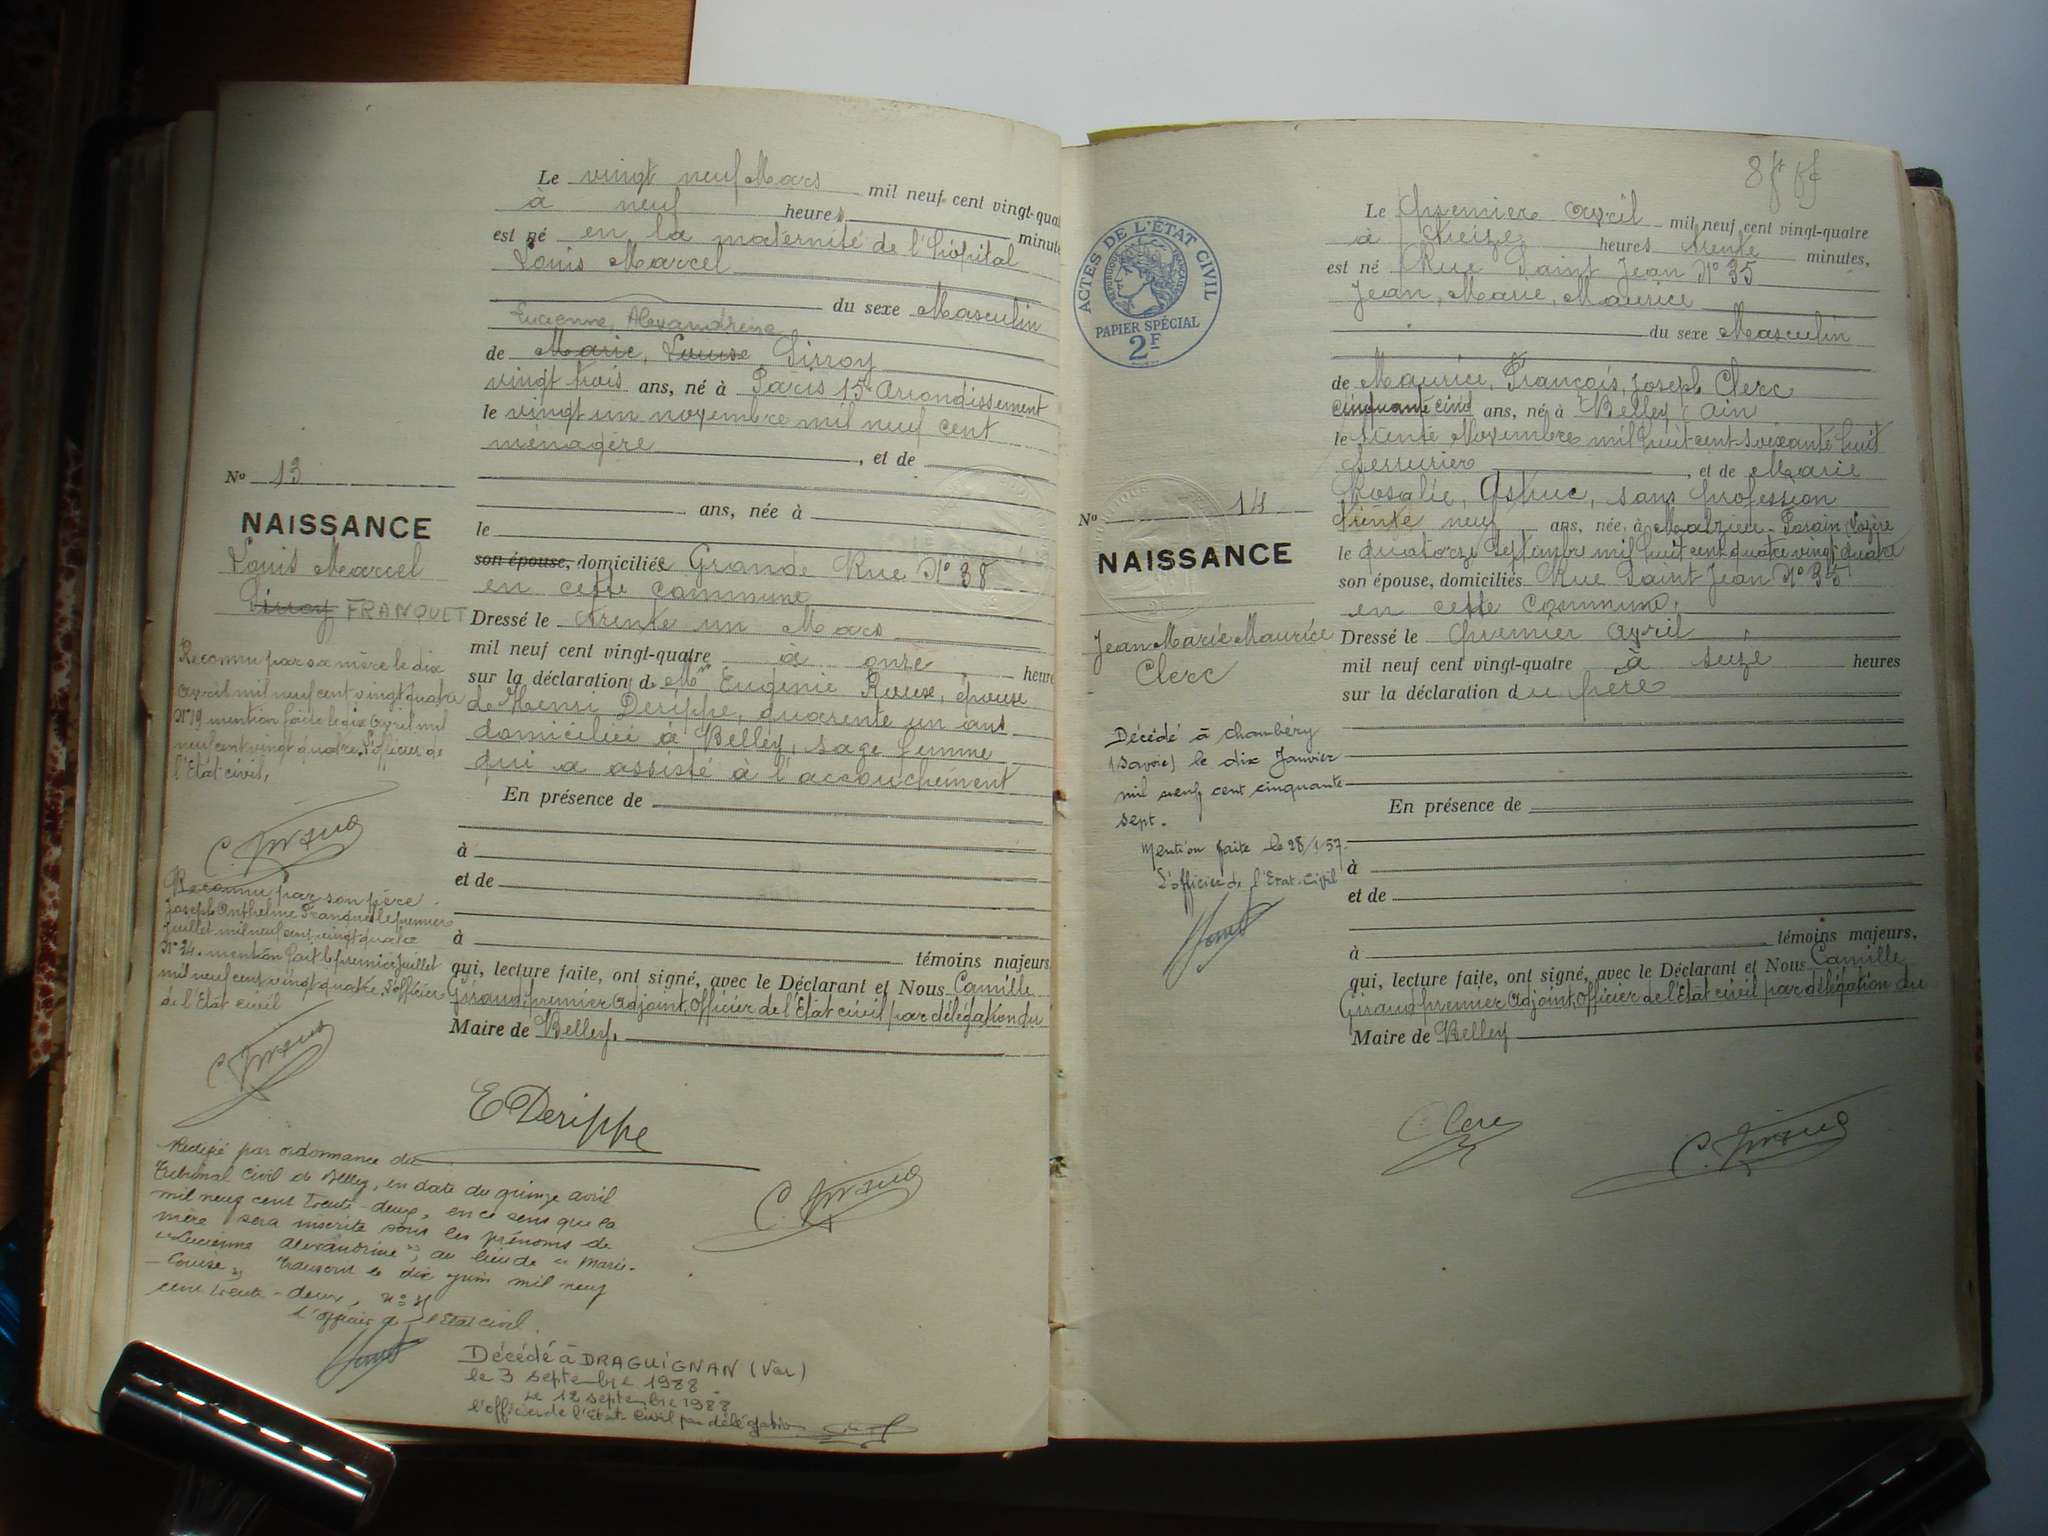 Le vingt neuf Mars mil neuf cent vingt-quat
à neuf heures minutes
est né en la maternité de l'hôpital
Louis Marcel
du sexe Masculin
Lucienne, Alexandrine
de Marie, Louise Sirroy
vingt trois ans, né à Paris 15e Arrondissement
le vingt un novembre mil neuf cent
ménagère, et de
ans, née à
No 13
NAISSANCE
Louis Marcel
Sirroy FRANQUET
le
son épouse, domiciliée Grande Rue No 38
en cette commune
Dressé le trente un Mars
mil neuf cent vingt-quatre à onze heure
sur la déclaration de Mme Eugénie Roux, épouse
de Henri Derippe, quarente un ans
domiciliée à Belley, sage femme
qui a assisté à l'accouchement
En présence de
à
et de
à
témoins majeurs,
qui, lecture faite, ont signé, avec le Déclarant et Nous Camille
Giraud, premier Adjoint, Officier de l'Etat civil par délégation du
Maire de Belley.
Reconnu par sa mère le dix
Avril mil neuf cent vingt quatre
No 19 mention faite le dix Avril mil
neuf cent vingt quatre. L'officier de
l'Etat civil,
C. Giraud
Reconnu par son père
Joseph Anthelme Franquet le premier
Juillet mil neuf cent vingt quatre
No 34. mention fait le premier Juillet
mil neuf cent vingt quatre. L'officier
de l'Etat civil
C. Giraud
E Derippe
C. Giraud
Rectifié par ordonnance du
Tribunal Civil de Belley, en date du quinze avril
mil neuf cent trente-deux, en ce sens que la
mère sera inscrite sous les prénoms de
"Lucienne Alexandrine", au lieu de "Marie-
Louise", transcrit le dix juin mil neuf
cent trente-deux, no
l'officier de l'Etat civil.
Décédé à DRAGUIGNAN (Var)
le 3 septembre 1988
Le 12 septembre 1988
l'officier de l'Etat Civil par délégation
8
ACTES DE L'ÉTAT CIVIL
RÉPUBLIQUE FRANÇAISE
PAPIER SPÉCIAL
2F
Le premier avril mil neuf cent vingt-quatre
à treize heures trente minutes,
est né Rue Saint Jean No 35
Jean, Marie, Maurice
du sexe Masculin
de Maurice, François, Joseph Clerc
cinquante cinq ans, né à Belley, Ain
le trente Novembre mil huit cent soixante huit
serrurier, et de Marie
Rosalie, Astruc, sans profession
trente neuf ans, née à Malzieu Lozère
le quatorze Septembre mil huit cent quatre vingt quatre
son épouse, domiciliés Rue Saint Jean No 35
en cette commune,
No 14
NAISSANCE
Jean Marie Maurice
Clerc
Dressé le premier avril
mil neuf cent vingt-quatre à seize heures
sur la déclaration du père
Décédé à Chambéry
(Savoie) le dix Janvier
mil neuf cent cinquante
sept.
Mention faite le 28/1/57.
L'officier de l'Etat-Civil
En présence de
à
et de
à
témoins majeurs,
qui, lecture faite, ont signé, avec le Déclarant et Nous Camille
Giraud premier Adjoint, Officier de l'Etat civil par délégation du
Maire de Belley
Clerc
C. Giraud